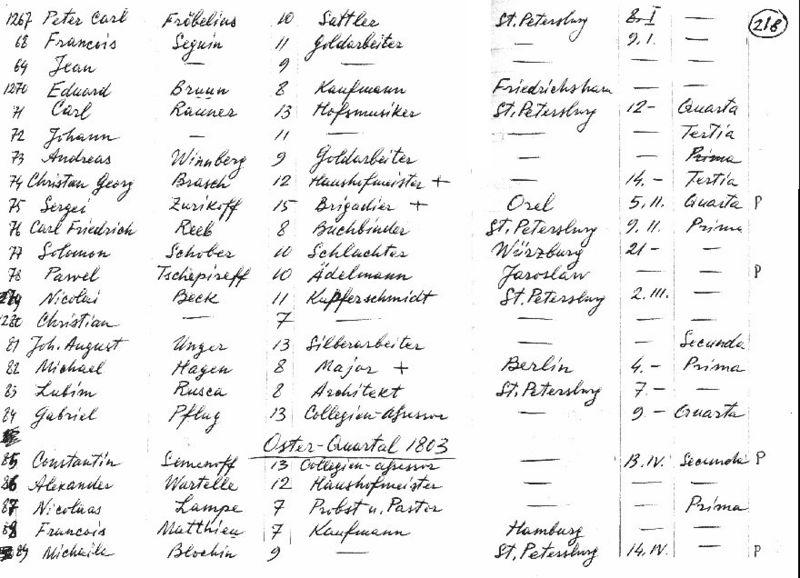 1267 Peter Carl Fröbelius 10 Sattler St. Petersburg 8. I — 218
68 Francois Seguin 11 Goldarbeiter — 9. I. —
69 Jean — 9 — — — —
1270 Eduard Bruun 8 Kaufmann Friedrichsham — —
71 Carl Rauner 13 Hofsmusiker St. Petersburg 12 – Quarta
72 Johann — 11 — — — Tertia
73 Andreas Winnberg 9 Goldarbeiter — — Prima
74 Christian Georg Brasch 12 Haushofmeister + — 14. – Tertia
75 Sergei Zurikoff 15 Brigadier + Orel 5. II. Quarta P
76 Carl Friedrich Reeb 8 Buchbinder St. Petersburg 9. II. Prima
77 Solomon Schober 10 Schlachter Würzburg 21 – —
78 Pawel Tschepireff 10 Ädelmann Jaroslaw — — P
279 Nicolai Beck 11 Kupferschmidt St. Petersburg 2. III. —
1280 Christian — 7 — — — —
81 Joh. August Unger 13 Silberarbeiter — — Secunda
82 Michael Hagen 8 Major + Berlin 4. – Prima
83 Lubim Rusca 8 Architekt St. Petersburg 7. – —
84 Gabriel Pflug 13 Collegien-assessor — 9 – Quarta
Oster-Quartal 1803
85 Constantin Semenoff 13 Collegien-assessor — 13. IV. Secunda P
86 Alexander Wartelle 12 Haushofmeister — — —
87 Nicolaas Lampe 7 Probst u. Pastor — — Prima
88 Francois Matthieu 7 Kaufmann Hamburg — —
89 Michaila Blochin 9 — St. Petersburg 14. IV. — P